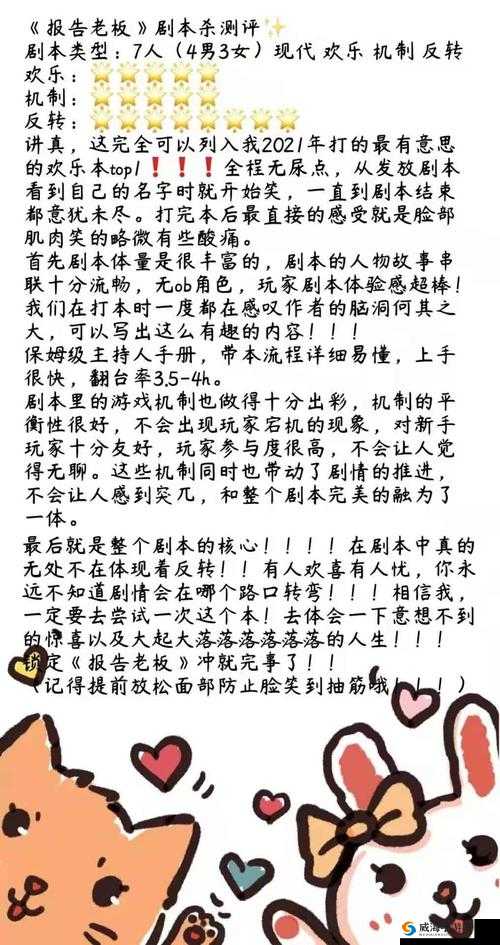 《报告老板》剧本杀测评✨
剧本类型：7人（4男3女）现代 欢乐 机制 反转
欢乐：🌟🌟🌟🌟🌟
机制：🌟🌟🌟🌟🌟
反转：🌟🌟🌟🌟🌟🌟🌟🌟
讲真，这完全可以列入我2021年打的最有意思
的欢乐本top1❗❗❗全程无尿点，从发放剧本
看到自己的名字时就开始笑，一直到剧本结束
都意犹未尽。打完本后最直接的感受就是脸部
肌肉笑的略微有些酸痛。
首先剧本体量是很丰富的，剧本的人物故事串
联十分流畅，无ob角色，玩家剧本体验感超棒！
我们在打本时一度都在感叹作者的脑洞何其之
大，可以写出这么有趣的内容！！！
保姆级主持人手册，带本流程详细易懂，上手
很快，翻台率3.5-4h。
剧本里的游戏机制也做得十分出彩，机制的平
衡性很好，不会出现玩家宕机的现象，对新手
玩家十分友好，玩家参与度很高，不会让人觉
得无聊。这些机制同时也带动了剧情的推进，
不会让人感到突兀，和整个剧本完美的融为了
一体。
最后就是整个剧本的核心！！！！在剧本中真的
无处不在体现着反转！！有人欢喜有人忧，你永
远不知道剧情会在哪个路口转弯！！！相信我，
一定要去尝试一次这个本！去体会一下意想不到
的惊喜以及大起大落落落落落落的人生！！！
锁定《报告老板》冲就完事了！！
（记得提前放松面部防止脸笑到抽筋哦！！！）
威海